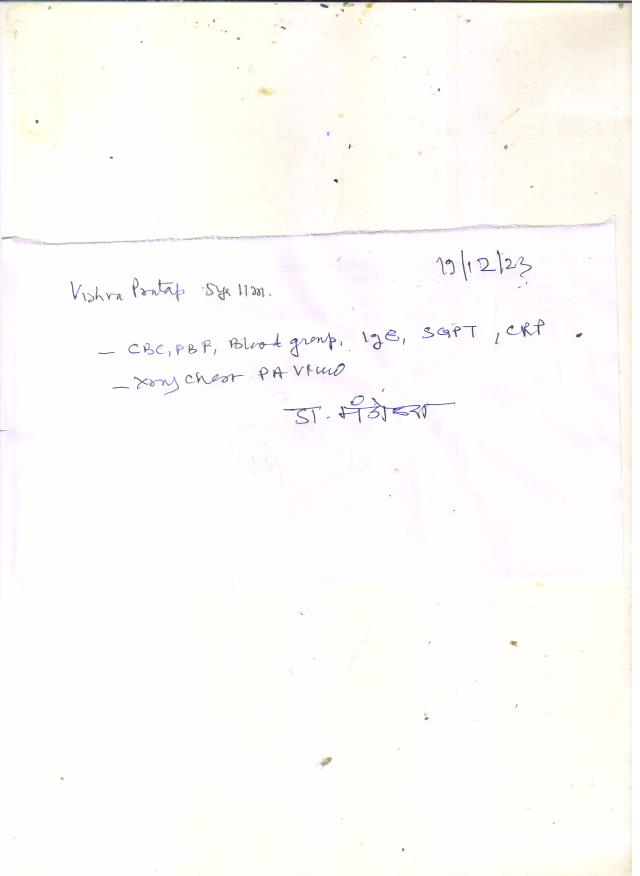 19/12/23
Vishra Pratap 5yr 11m.
- CBC, PBF, Blood group, IgE, SGPT, CRP
- Xray Chest PA View
डा.